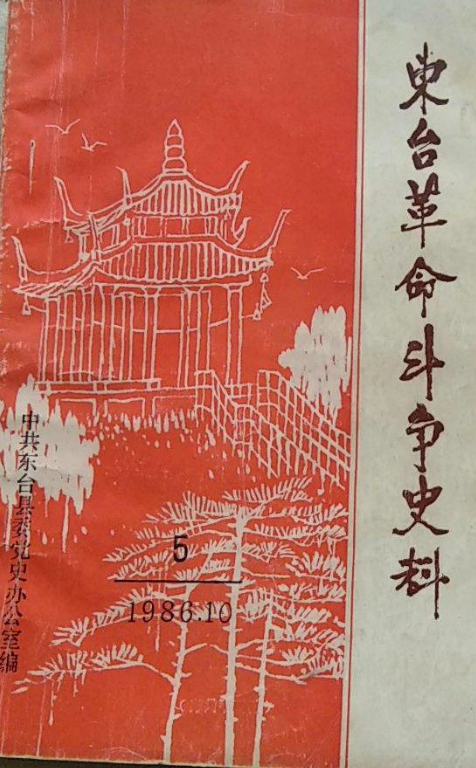 東台革命斗争史料
5
1986.10
中共东台县委党史办公室编